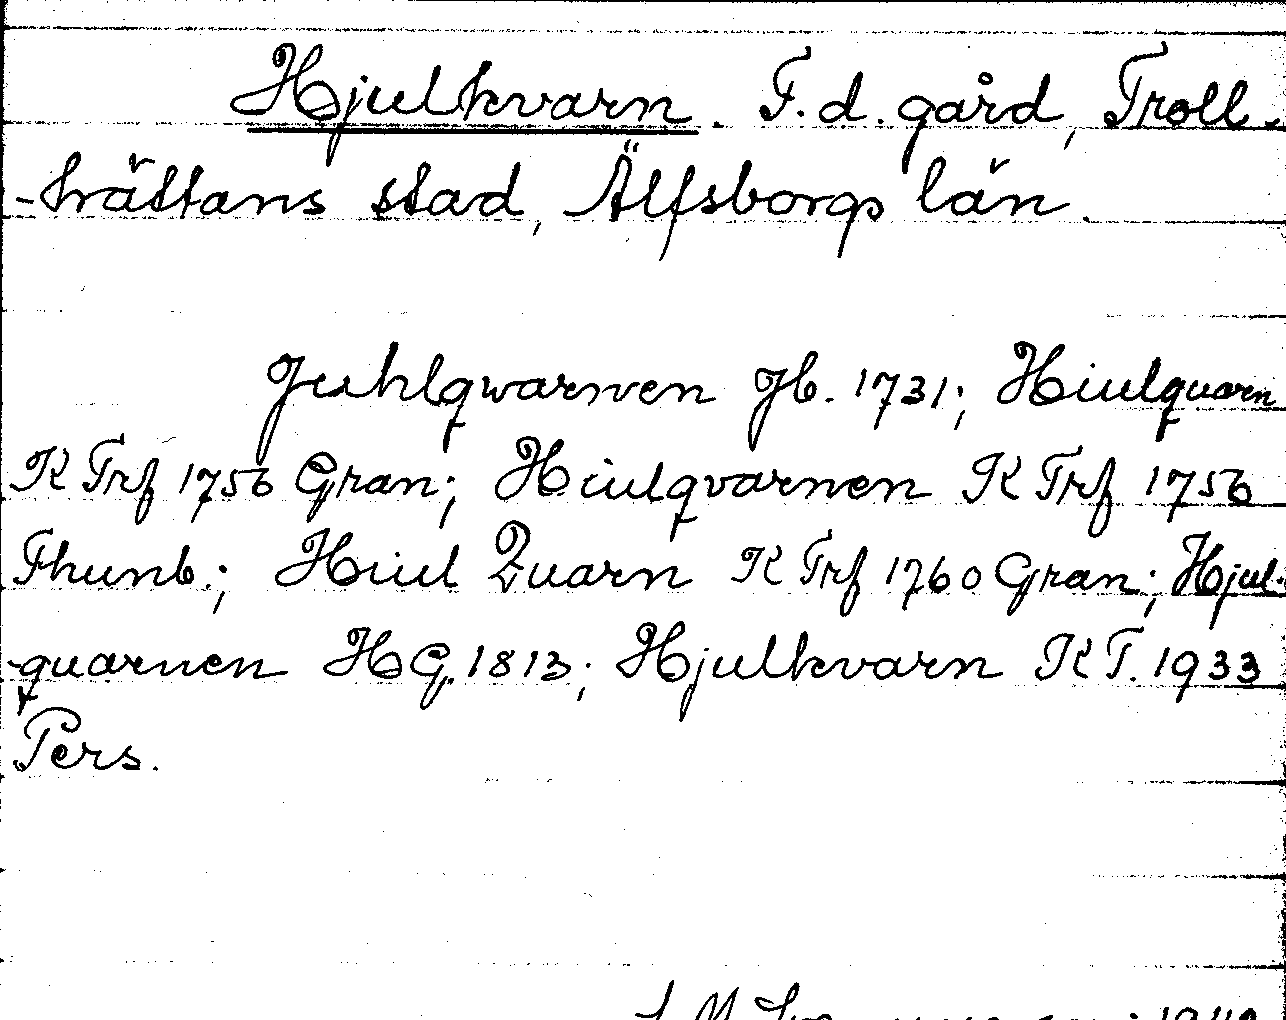 Hjulkvarn. F.d. gård, Troll-
-hättans stad, Älfsborgs län.
Juhlqwarnen Jb. 1731; Hiulquarn
K Trf 1756 Gran; Hiulqvarnen K Trf 1756
Thunb.; Hiul Quarn K Trf 1760 Gran; Hjul-
-quarnen HG. 1813; Hjulkvarn KT. 1933
Pers.